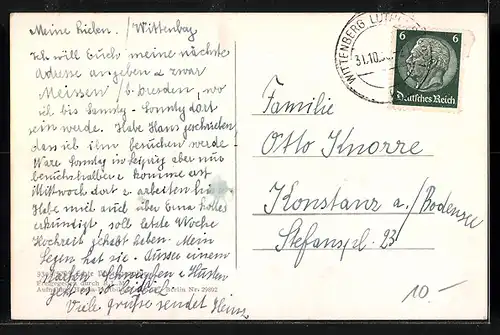 Meine Lieben. / Wittenbg
Ich will Euch meine nächste
Adresse angeben u zwar
Meissen / b. Dresden, wo
ich bis Sonntg - Sonntg dort
sein werde. Habe Hans geschrieben
dan ich ihn besuchen werde
Ware Sonntg in Leipzig aber nur
besuchshalber u komme erst
Mittwoch dort z. arbeiten hin
Habe mich auch über Erna Kolles
erkundigt, soll letzte Woche
Hochzeit gehabt haben. Mein
Segen hat sie. Ausser einem
Schnupfen u Husten
geht es
Viele Grüße sendet Heinz
Berlin Nr. 29892
WITTENBERG LUTH
31.10.
6 6
Deutsches Reich
Familie
Otto Knorre
Konstanz a./Bodensee
Stefanspl. 23
10 -